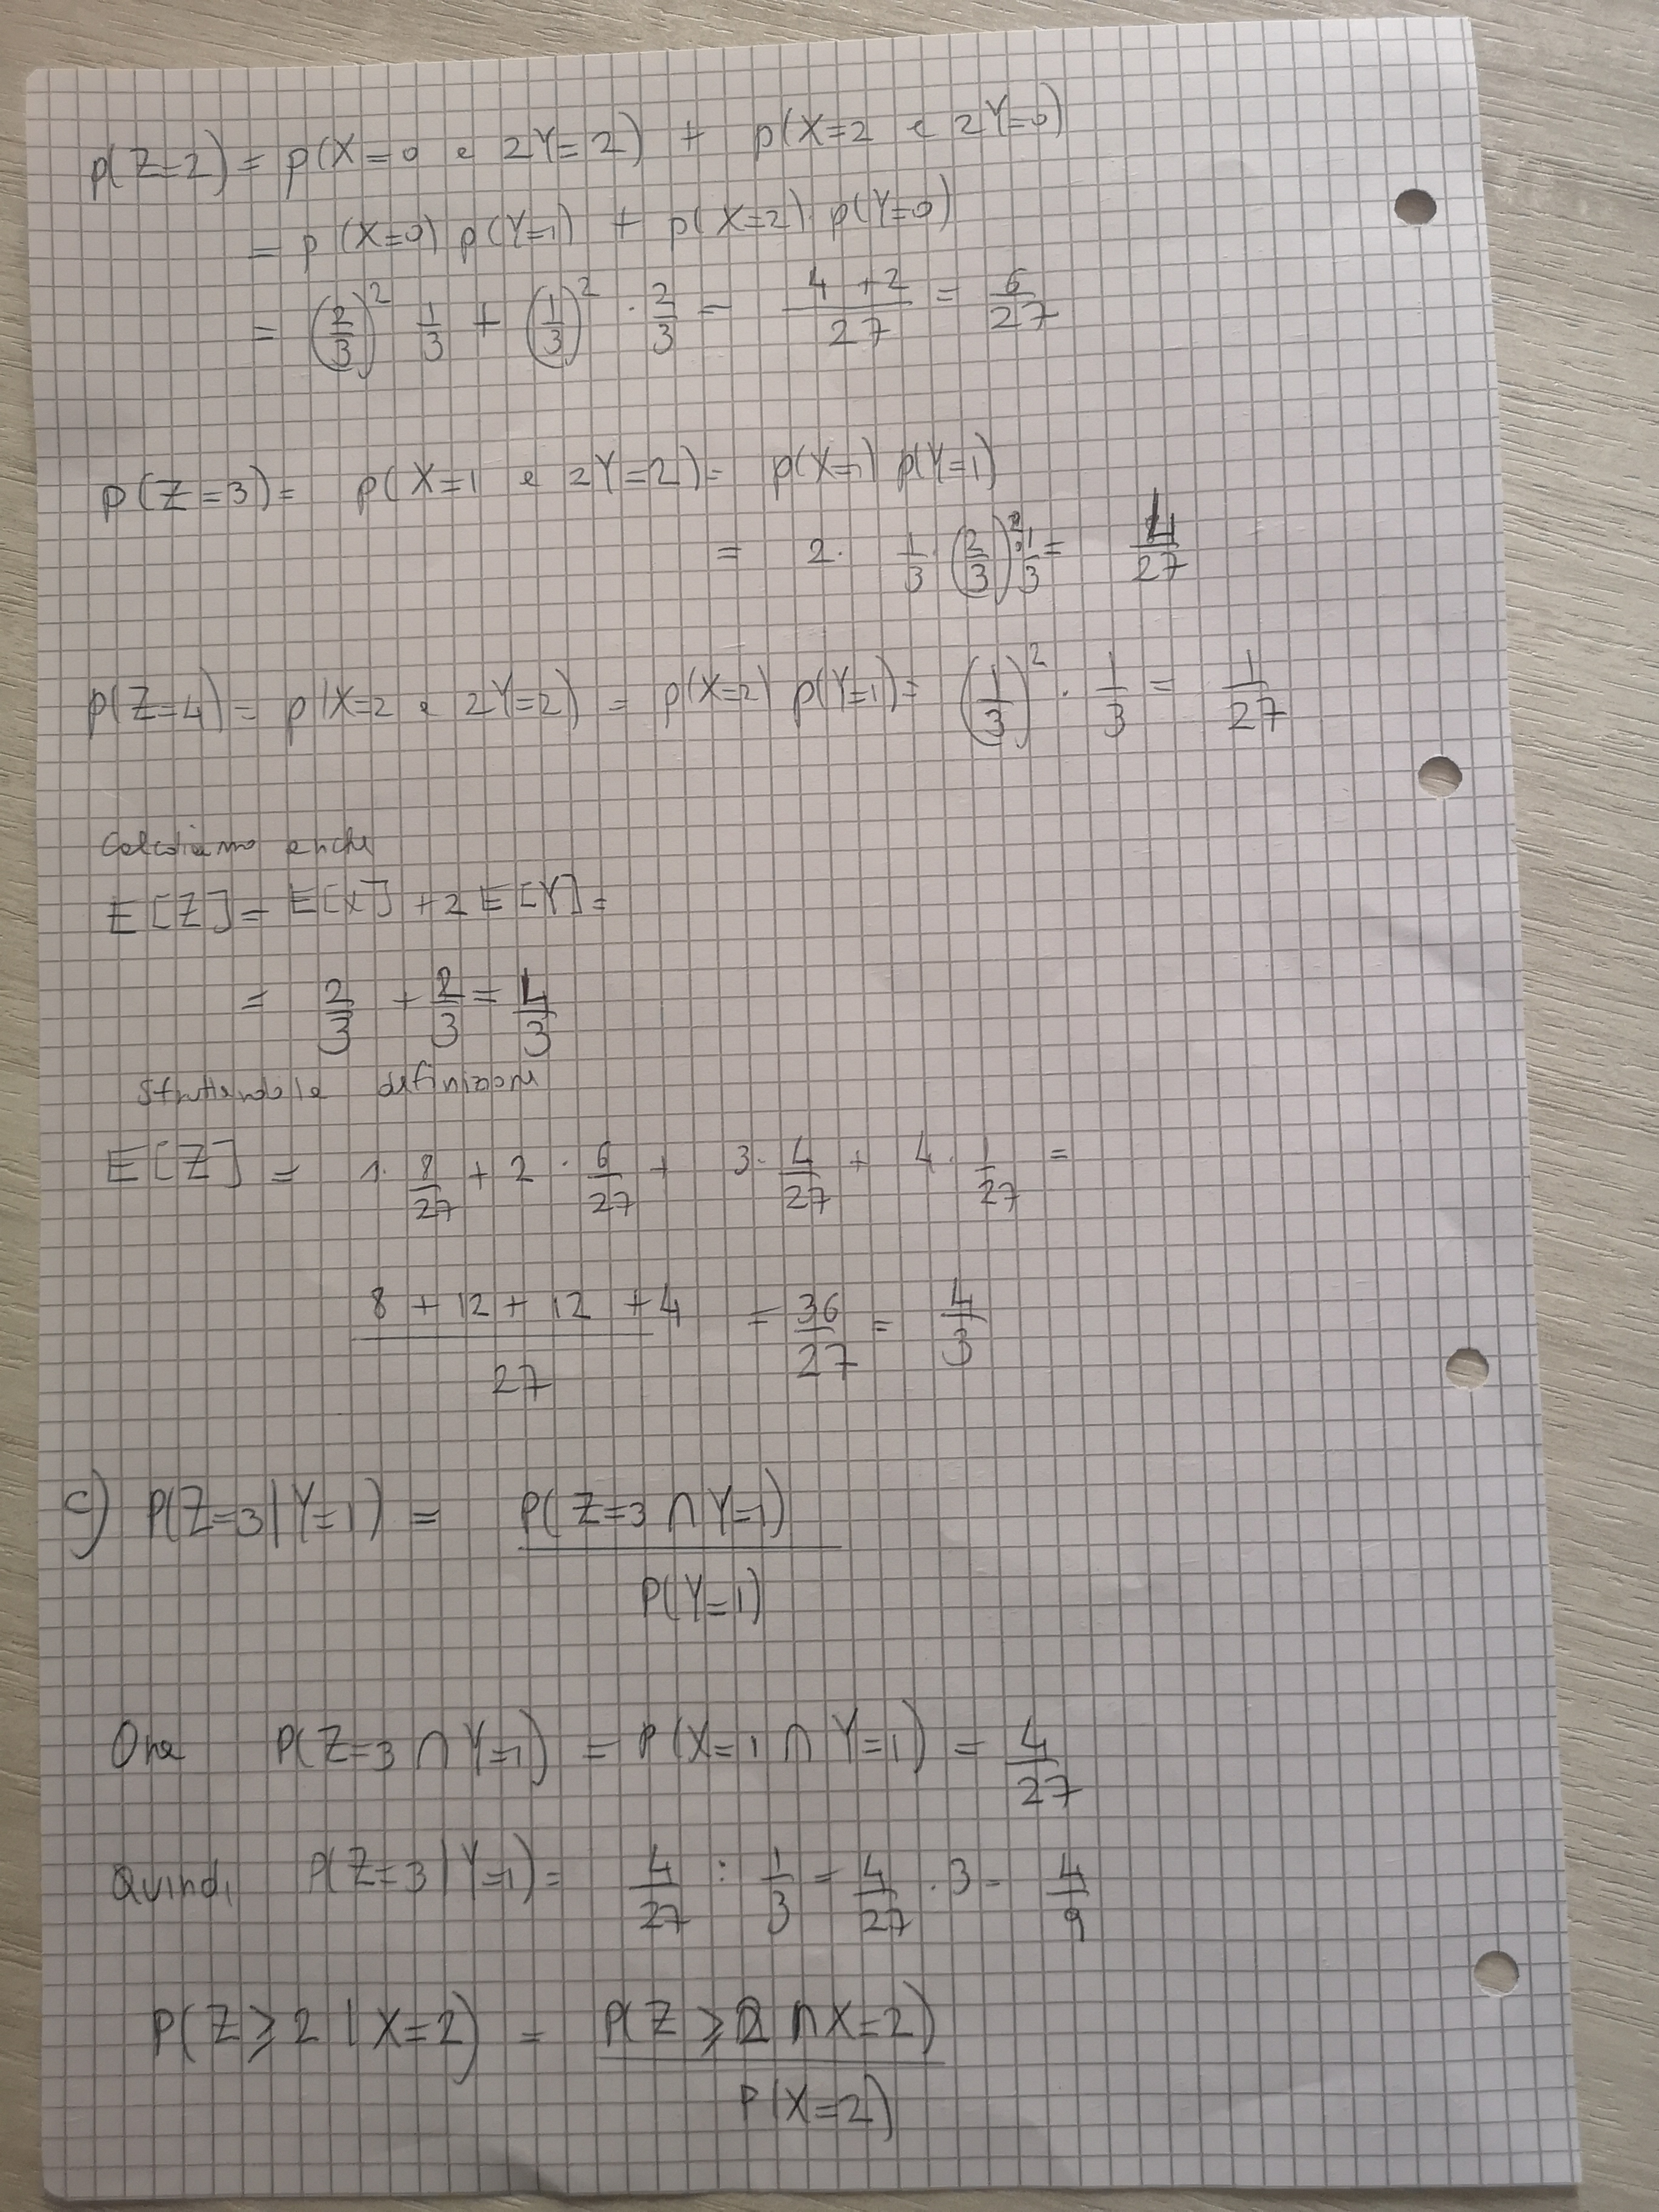 p(Z=2) = p(X=0 e 2Y=2) + p(X=2 e 2Y=0)
= p(X=0) p(Y=1) + p(X=2) p(Y=0)
= (2/3)² 1/3 + (1/3)² · 2/3 = (4+2)/27 = 6/27
p(Z=3) = p(X=1 e 2Y=2) = p(X=1) p(Y=1)
= 2 · 1/3 · (2/3) · 1/3 = 4/27
p(Z=4) = p(X=2 e 2Y=2) = p(X=2) p(Y=1) = (1/3)² · 1/3 = 1/27
Calcoliamo anche
E[Z] = E[X] + 2E[Y] =
= 2/3 + 2/3 = 4/3
Sfruttando la definizione
E[Z] = 1 · 8/27 + 2 · 6/27 + 3 · 4/27 + 4 · 1/27 =
(8 + 12 + 12 + 4)/27 = 36/27 = 4/3
c) P(Z=3 | Y=1) = P(Z=3 ∩ Y=1) / P(Y=1)
Ora P(Z=3 ∩ Y=1) = P(X=1 ∩ Y=1) = 4/27
Quindi P(Z=3 | Y=1) = 4/27 : 1/3 = 4/27 · 3 = 4/9
P(Z ≥ 2 | X=2) = P(Z ≥ 2 ∩ X=2) / P(X=2)